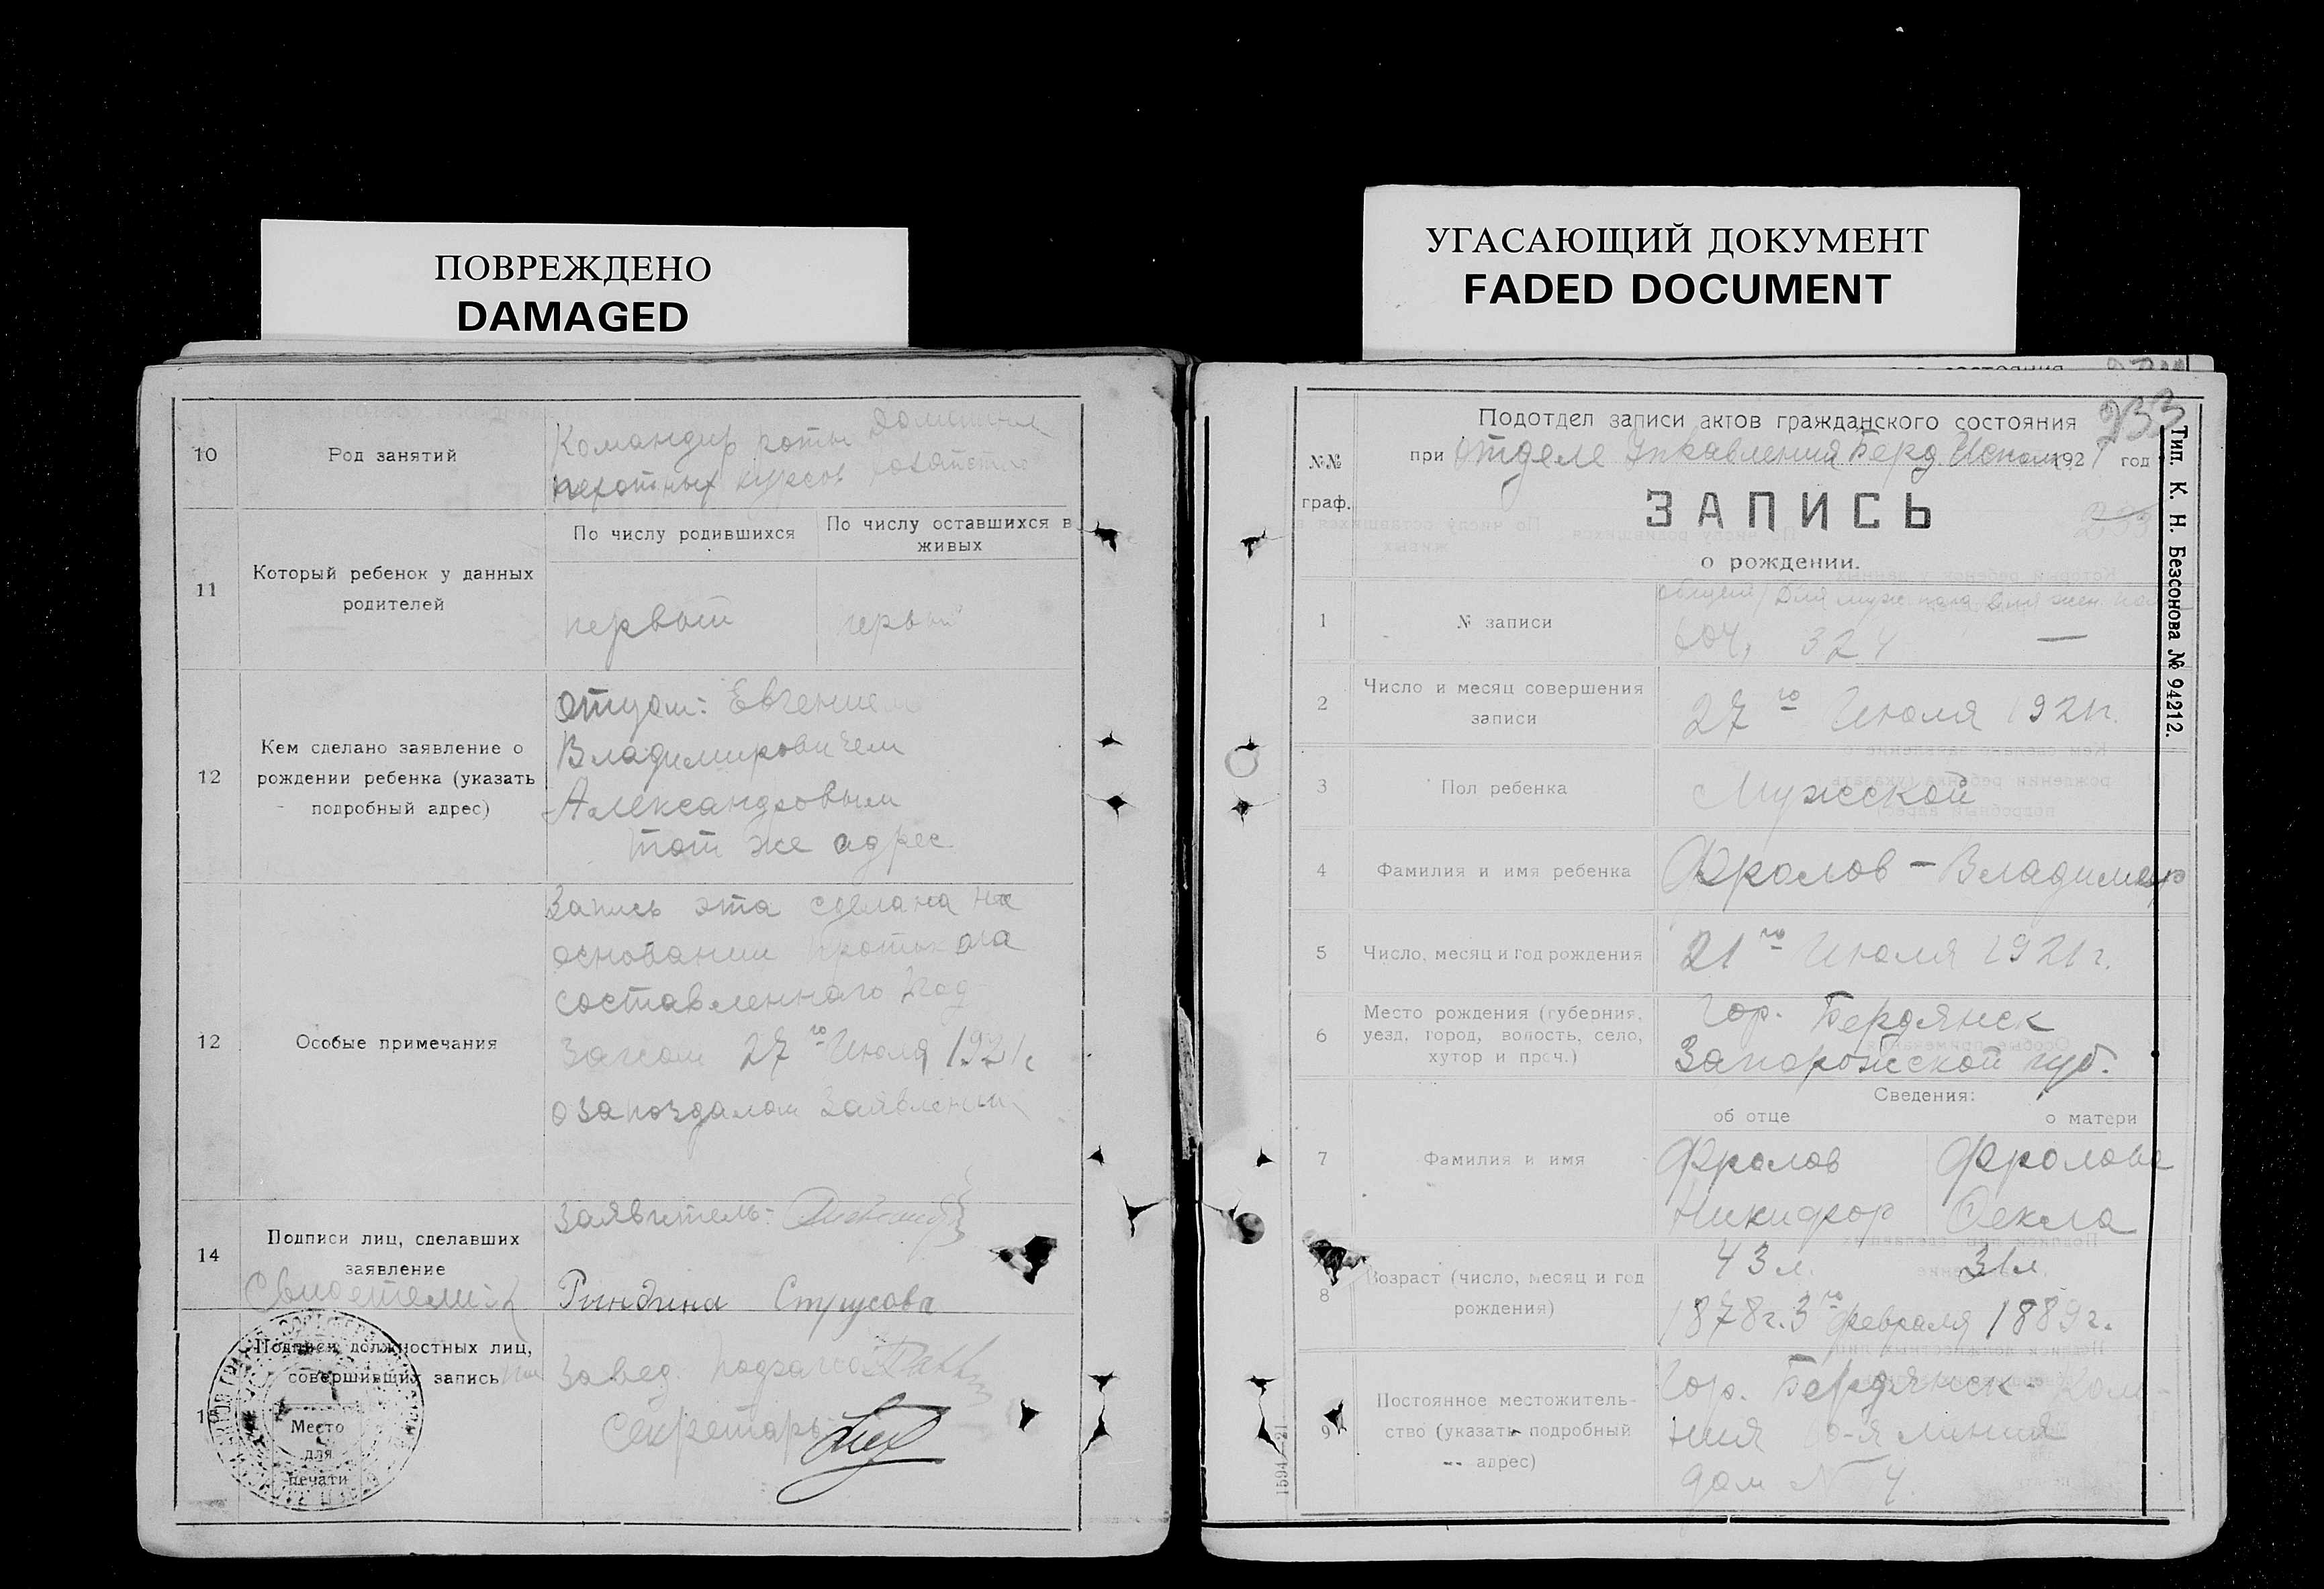 ПОВРЕЖДЕНО
DAMAGED
10
Род занятий
Командир роты
пехотных курсов
Домашнее
хозяйство
11
Который ребенок у данных
родителей
По числу родившихся
По числу оставшихся в
живых
первый
первый
12
Кем сделано заявление о
рождении ребенка (указать
подробный адрес)
отцом: Евгением
Владимировичем
Александровым
тот же адрес
12
Особые примечания
Запись эта сделана на
основании протокола
составленного Под
загсом 27го Июля 1921г
о запоздалом заявлении
14
Подписи лиц, сделавших
заявление
Свидетели:
Заявитель:
Риндина Струсова
Подписи должностных лиц,
совершивших запись
Место
для
печати
Завед. подзагсом
Секретарь
УГАСАЮЩИЙ ДОКУМЕНТ
FADED DOCUMENT
233
№№
граф.
Подотдел записи актов гражданского состояния
при Отделе Управления Берд. Исполк. 1921 год
ЗАПИСЬ
о рождении.
233
1
№ записи
общий / Для муж. пола Для жен. пола
604, 324 —
2
Число и месяц совершения
записи
27го Июля 1921г.
3
Пол ребенка
Мужской
4
Фамилия и имя ребенка
Фролов - Владимир
5
Число, месяц и год рождения
21го Июля 1921г.
6
Место рождения (губерния,
уезд, город, волость, село,
хутор и проч.)
Гор. Бердянск
Запорожской губ.
Сведения:
об отце
о матери
7
Фамилия и имя
Фролов
Никифор
Фролова
Фекла
8
Возраст (число, месяц и год
рождения)
43 л.
31 л
1878г. 3го февраля 1889г.
9
Постоянное местожитель-
ство (указать подробный
адрес)
Гор. Бердянск - Коло-
ния линия
дом № 4.
Тип. К. Н. Безсонова № 94212.
1594—21